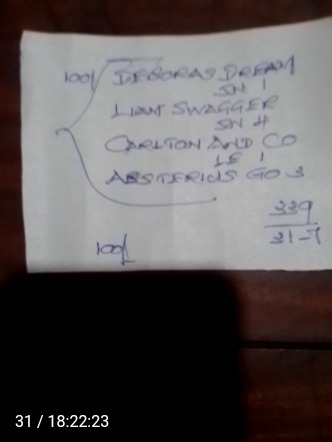 100/ DEBORAS DREAM
SN 1
LIAM SWAGGER
SN 4
CARLTON AND CO
LE 1
ABSTERIUS GO 3
339
31-7
100/
31 / 18:22:23